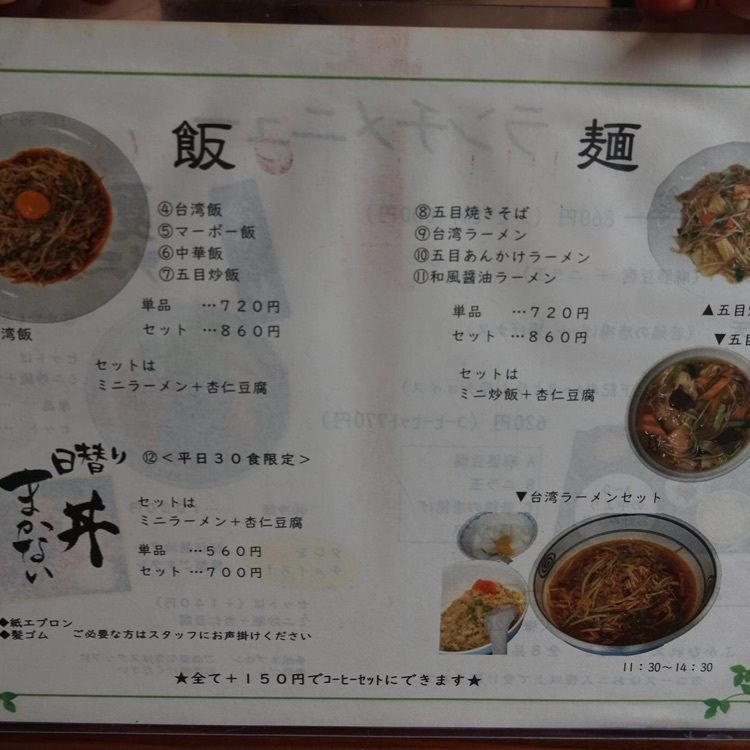 飯
④台湾飯
⑤マーボー飯
⑥中華飯
⑦五目炒飯
単品 …７２０円
セット …８６０円
セットは
ミニラーメン＋杏仁豆腐
湾飯
日替り
まかない
丼
⑫＜平日３０食限定＞
セットは
ミニラーメン＋杏仁豆腐
単品 …５６０円
セット …７００円
◆紙エプロン
◆髪ゴム ご必要な方はスタッフにお声掛けください
麺
⑧五目焼きそば
⑨台湾ラーメン
⑩五目あんかけラーメン
⑪和風醤油ラーメン
単品 …７２０円
セット …８６０円
セットは
ミニ炒飯＋杏仁豆腐
▲五目
▼五目
▼台湾ラーメンセット
１１：３０～１４：３０
★全て＋１５０円でｺｰﾋｰｾｯﾄにできます★